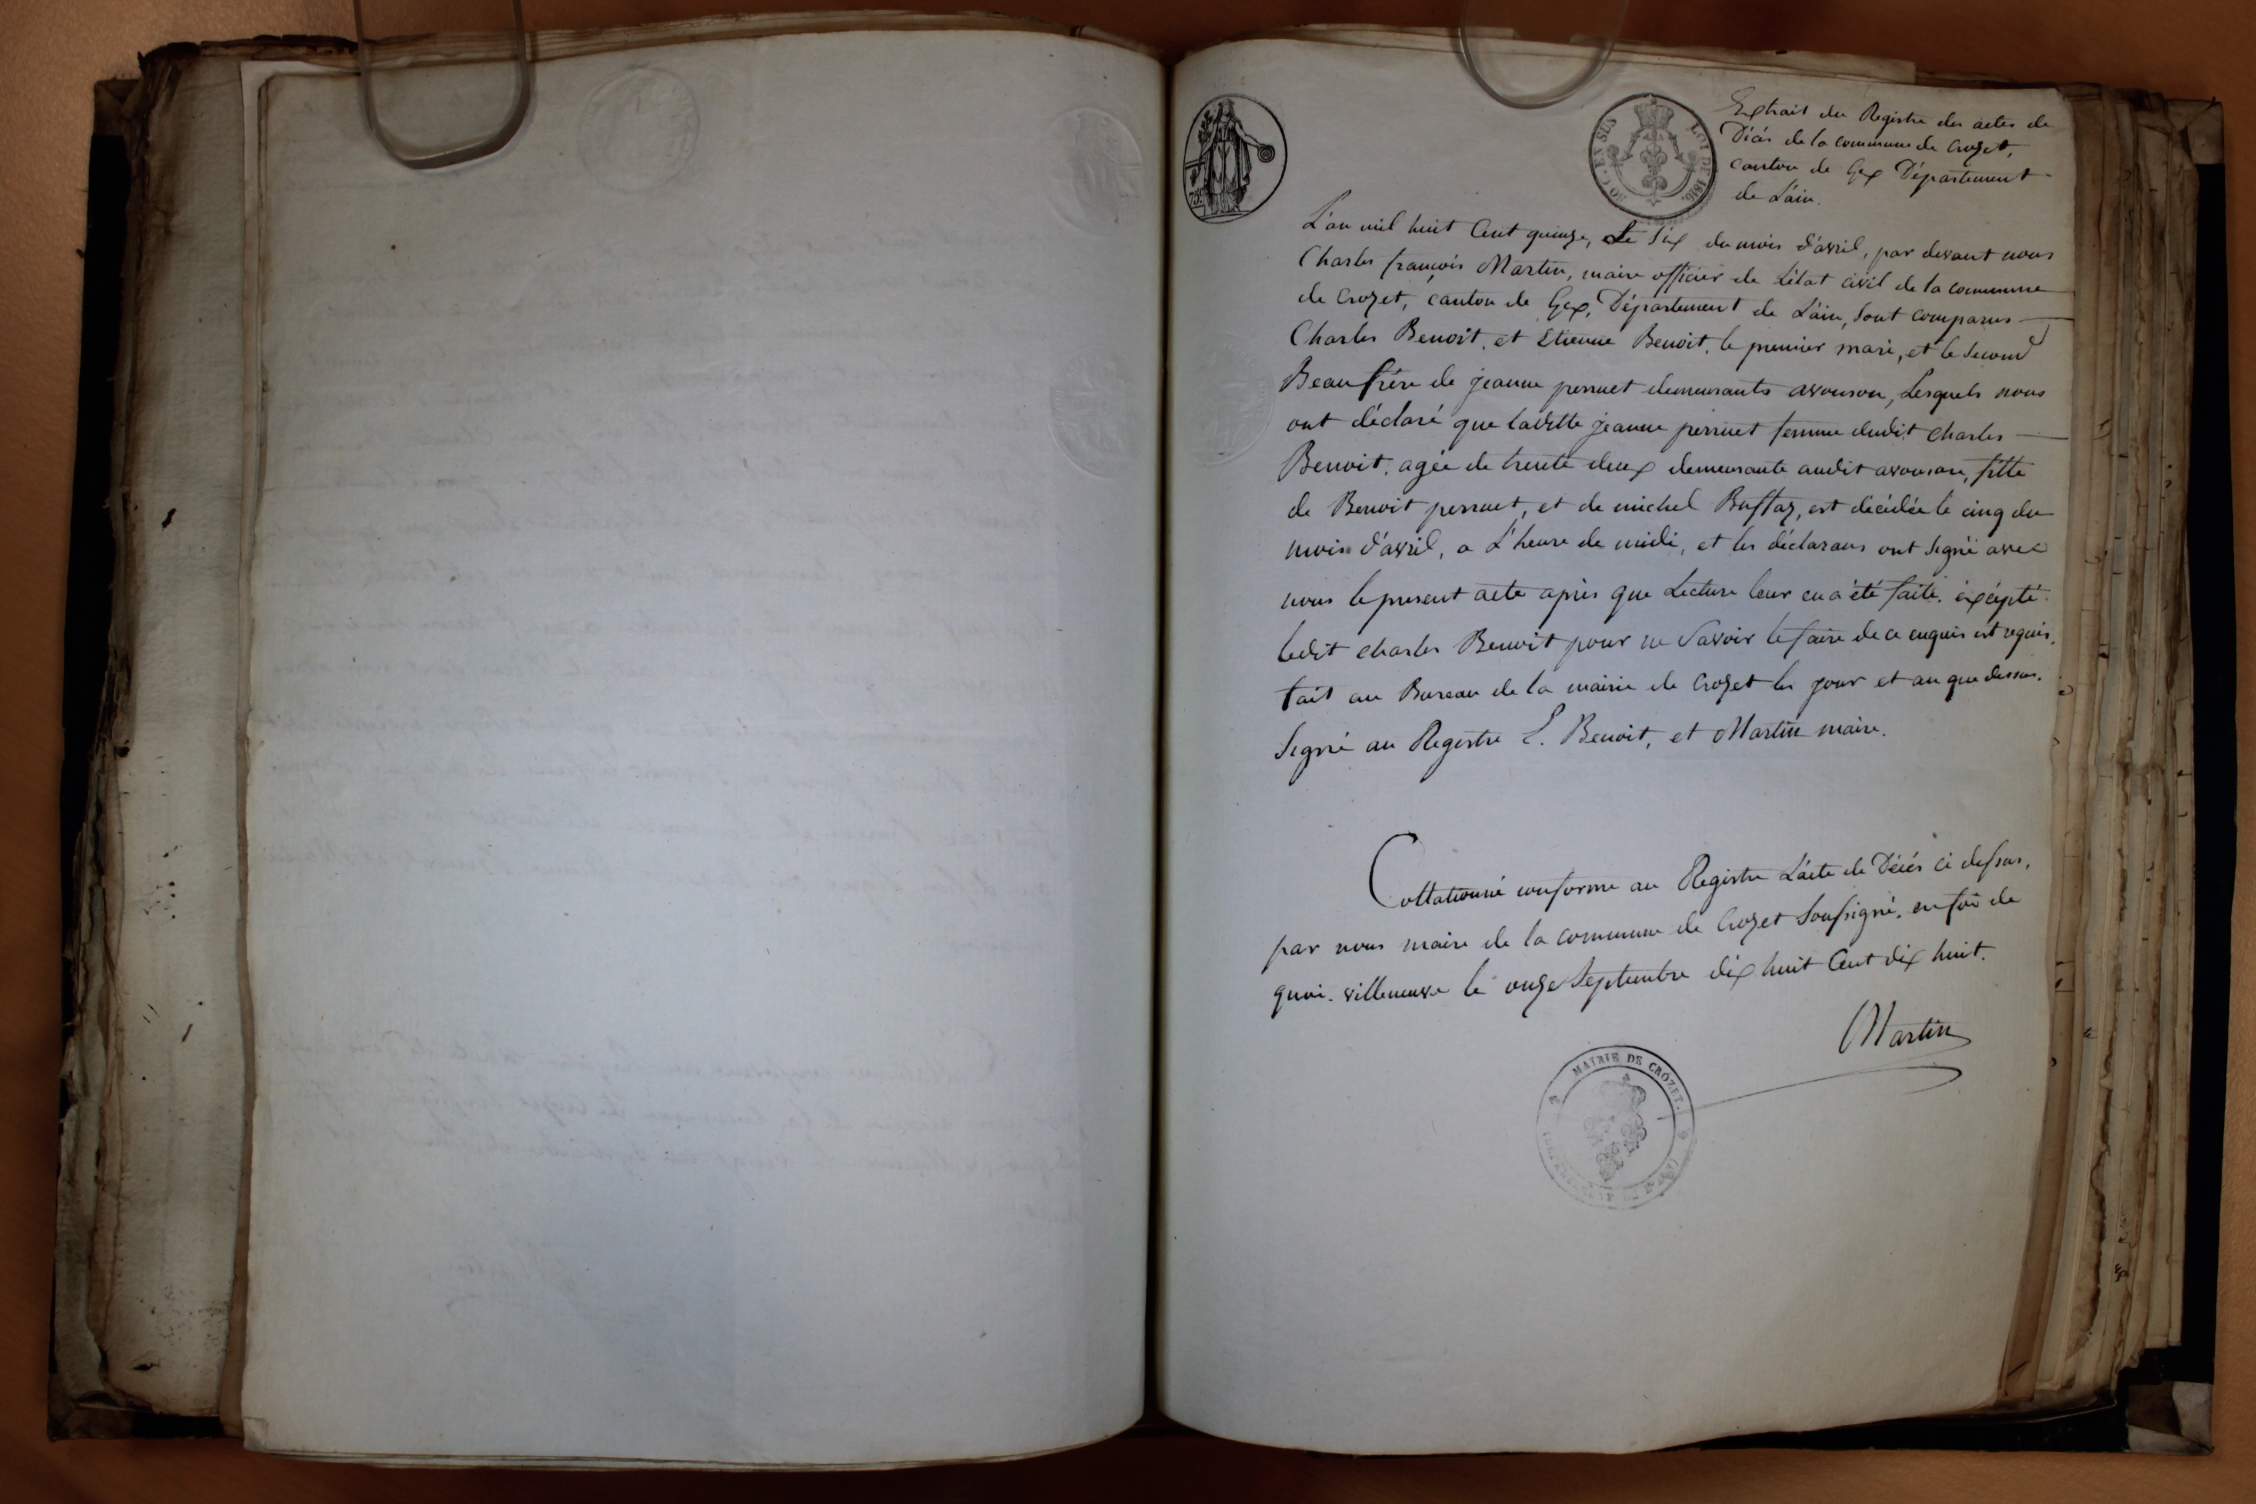 Extrait du Registre des actes de
Décés de la commune de Crozet,
canton de Gex Département
de L'ain.
50 C. EN SUS
LOI DE 1816.
75
L'an mil huit Cent quinze, Le Six du mois d'avril, par devant nous
Charles françois Martin, maire officier de L'état civil de la commune
de Crozet, canton de Gex, Département de L'ain, sont comparus
Charles Benoit, et Etienne Benoit, le premier mari, et le Second
Beau frére de jeanne perruet demeurants avouson, Lesquels nous
ont déclaré que laditte jeanne perruet femme dudit Charles
Benoit, agée de trente deux demeurante audit avouson, fille
de Benoit perruet, et de michel Buffaz, est décédée le cinq du
mois d'avril, a L'heure de midi, et les déclarans ont Signé avec
nous le present acte aprés que Lecture leur en a été faite. éxcépté
ledit Charles Benoit pour ne Savoir le faire de ce enquis est requis.
fait au Bureau de la mairie de Crozet les jour et an que dessus.
Signé au Registre E. Benoit, et Martin maire.
Collationné conforme au Registre L'acte de Décés ci dessus,
par nous maire de la commune de Crozet Soussigné. en foi de
quoi. villeneuve le onze Septembre dix huit Cent dix huit.
Martin
MAIRIE DE CROZET.